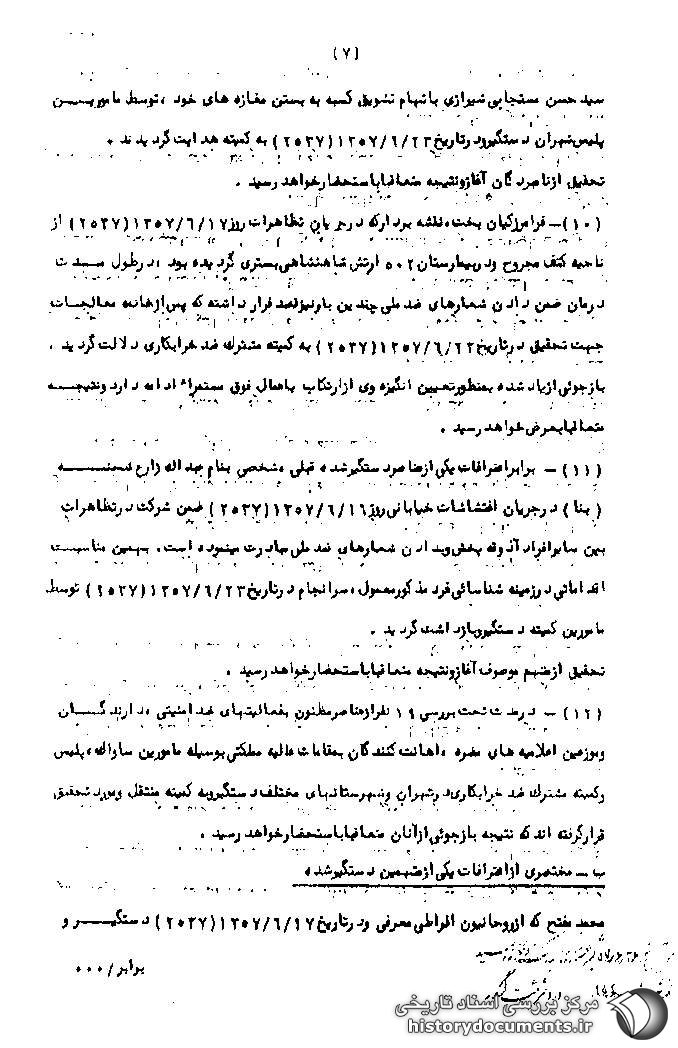 (۷)
سید حسن مستجابی شیرازی باتهام تشویق کسبه به بستن مغازه های خود ، توسط مامورین
پلیس تهران دستگیرودرتاریخ ۱۳۵۷/۶/۲۳ (۲۵۳۷) به کمیته هدایت گردیدند .
تحقیق ازنامبردگان آغازونتیجه متعاقباباستحضارخواهد رسید .
(۱۰) – فرامرزکیان بخت، نقشه بردارکه درجریان تظاهرات روز ۱۳۵۷/۶/۱۷ (۲۵۳۷) از
ناحیه کتف مجروح ودربیمارستان ۵۰۲ ارتش شاهنشاهی بستری گردیده بود ، درطول مدت
درمان ضمن دادن شعارهای ضد ملی چندین بارنیزقصد فرار داشته که پس ازخاتمه معالجات
جهت تحقیق درتاریخ ۱۳۵۷/۶/۲۲ (۲۵۳۷) به کمیته مشترك ضد خرابکاری دلالت گردید .
بازجوئی ازیاد شده بمنظورتعیین انگیزه وی ازارتکاب باعمال فوق مستمراً ادامه دارد ونتیجه
متعاقبابعرض خواهد رسید .
(۱۱) – برابراعترافات یکی ازعناصردستگیرشده قبلی ، شخصی بنام عبداله زارع
(بنا) درجریان اغتشاشات خیابانی روز ۱۳۵۷/۶/۱۶ (۲۵۳۷) ضمن شرکت درتظاهرات
بین سایرافراد آذوقه پخش وبدادن شعارهای ضد ملی مبادرت مینموده است . بهمین مناسبت
اقداماتی درزمینه شناسائی فرد مذکورمعمول ، سرانجام درتاریخ ۱۳۵۷/۶/۲۳ (۲۵۳۷) توسط
مامورین کمیته دستگیروبازداشت گردید .
تحقیق ازمتهم موصوف آغازونتیجه متعاقباباستحضارخواهد رسید .
(۱۲) – درمدت تحت بررسی ۱۹ نفرازعناصرمظنون بفعالیتهای ضد امنیتی ، دارندگان
وموزعین اعلامیه های مضره ، اهانت کنندگان بمقامات عالیه مملکتی بوسیله مامورین ساواك ، پلیس
وکمیته مشترك ضد خرابکاری درتهران وشهرستانهای مختلف دستگیروبه کمیته منتقل ومورد تحقیق
قرارگرفته اند که نتیجه بازجوئی ازآنان متعاقباباستحضارخواهد رسید .
ب – مختصری ازاعترافات یکی ازمتهمین دستگیرشده
محمد مفتح که ازروحانیون افراطی معرفی ودرتاریخ ۱۳۵۷/۶/۱۷ (۲۵۳۷) دستگیر و
برابر / ۰۰۰
مرکز بررسی اسناد تاریخی
historydocuments.ir